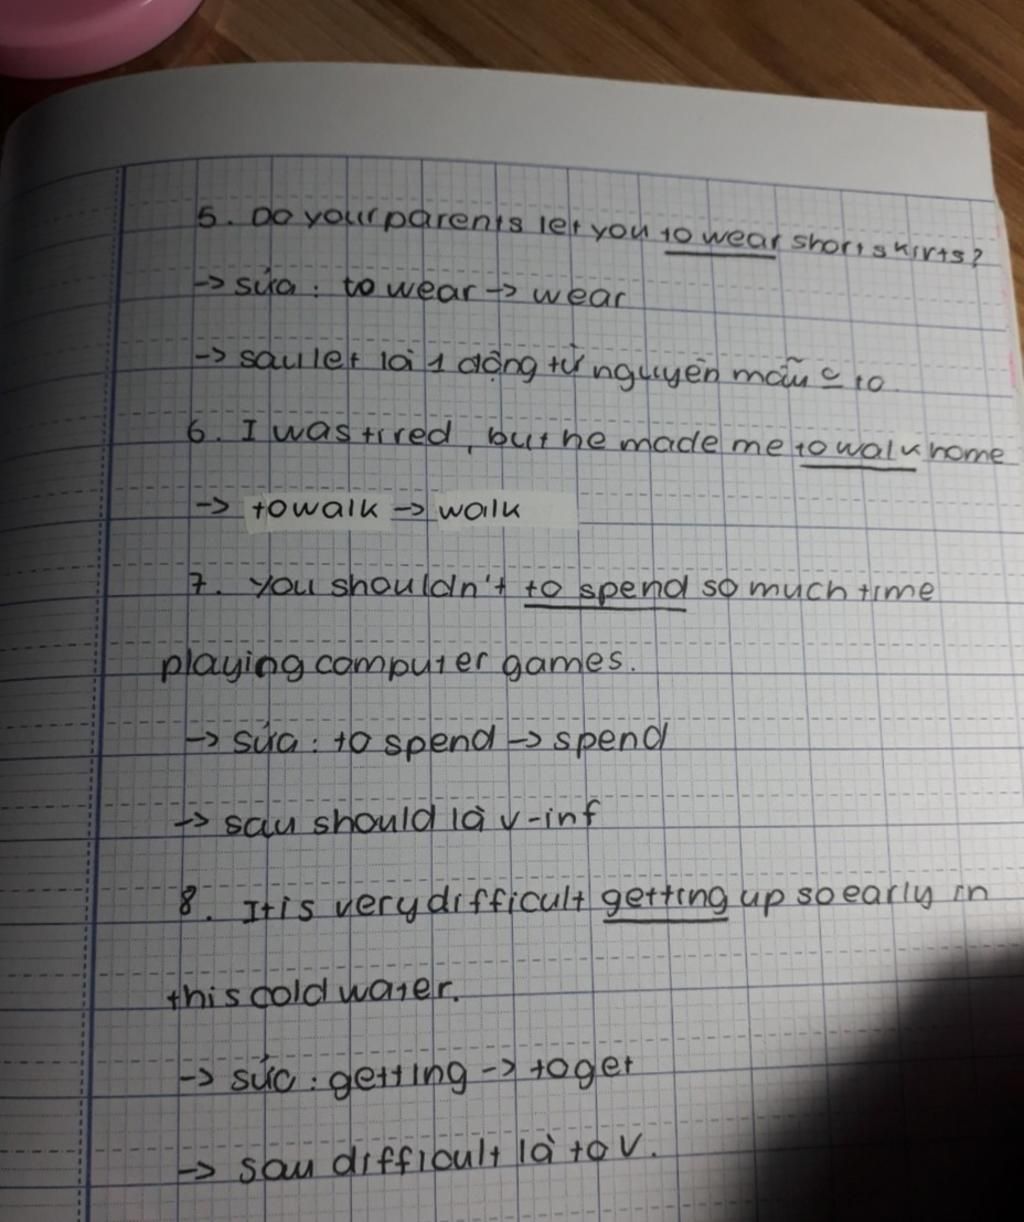 5. Do your parents let you to wear short skirts?
→ sửa: to wear → wear
→ sau let là 1 động từ nguyên mẫu to
6. I was tired, but he made me to walk home
→ to walk → walk
7. You shouldn't to spend so much time
playing computer games.
→ sửa: to spend → spend
→ sau should là v-inf
8. It is very difficult getting up so early in
this cold water.
→ sửa: getting → to get
→ sau difficult là to V.